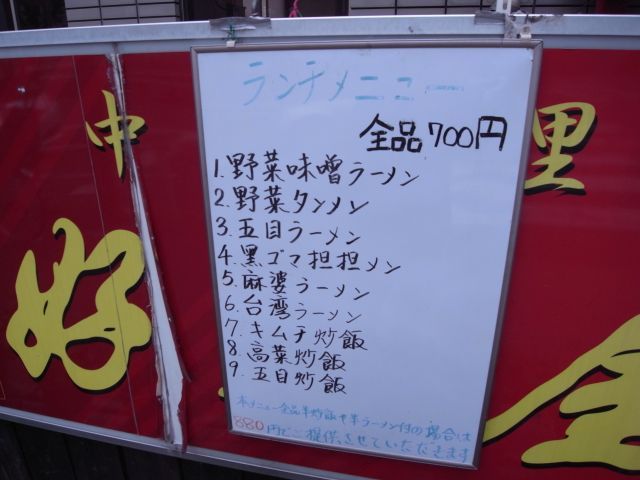 ランチメニュー
全品700円
1.野菜味噌ラーメン
2.野菜タンメン
3.五目ラーメン
4.黒ゴマ担担メン
5.麻婆ラーメン
6.台湾ラーメン
7.キムチ炒飯
8.高菜炒飯
9.五目炒飯
本メニュー全品半炒飯や半ラーメン付の場合は
880円でご提供させていただきます
中
里
好